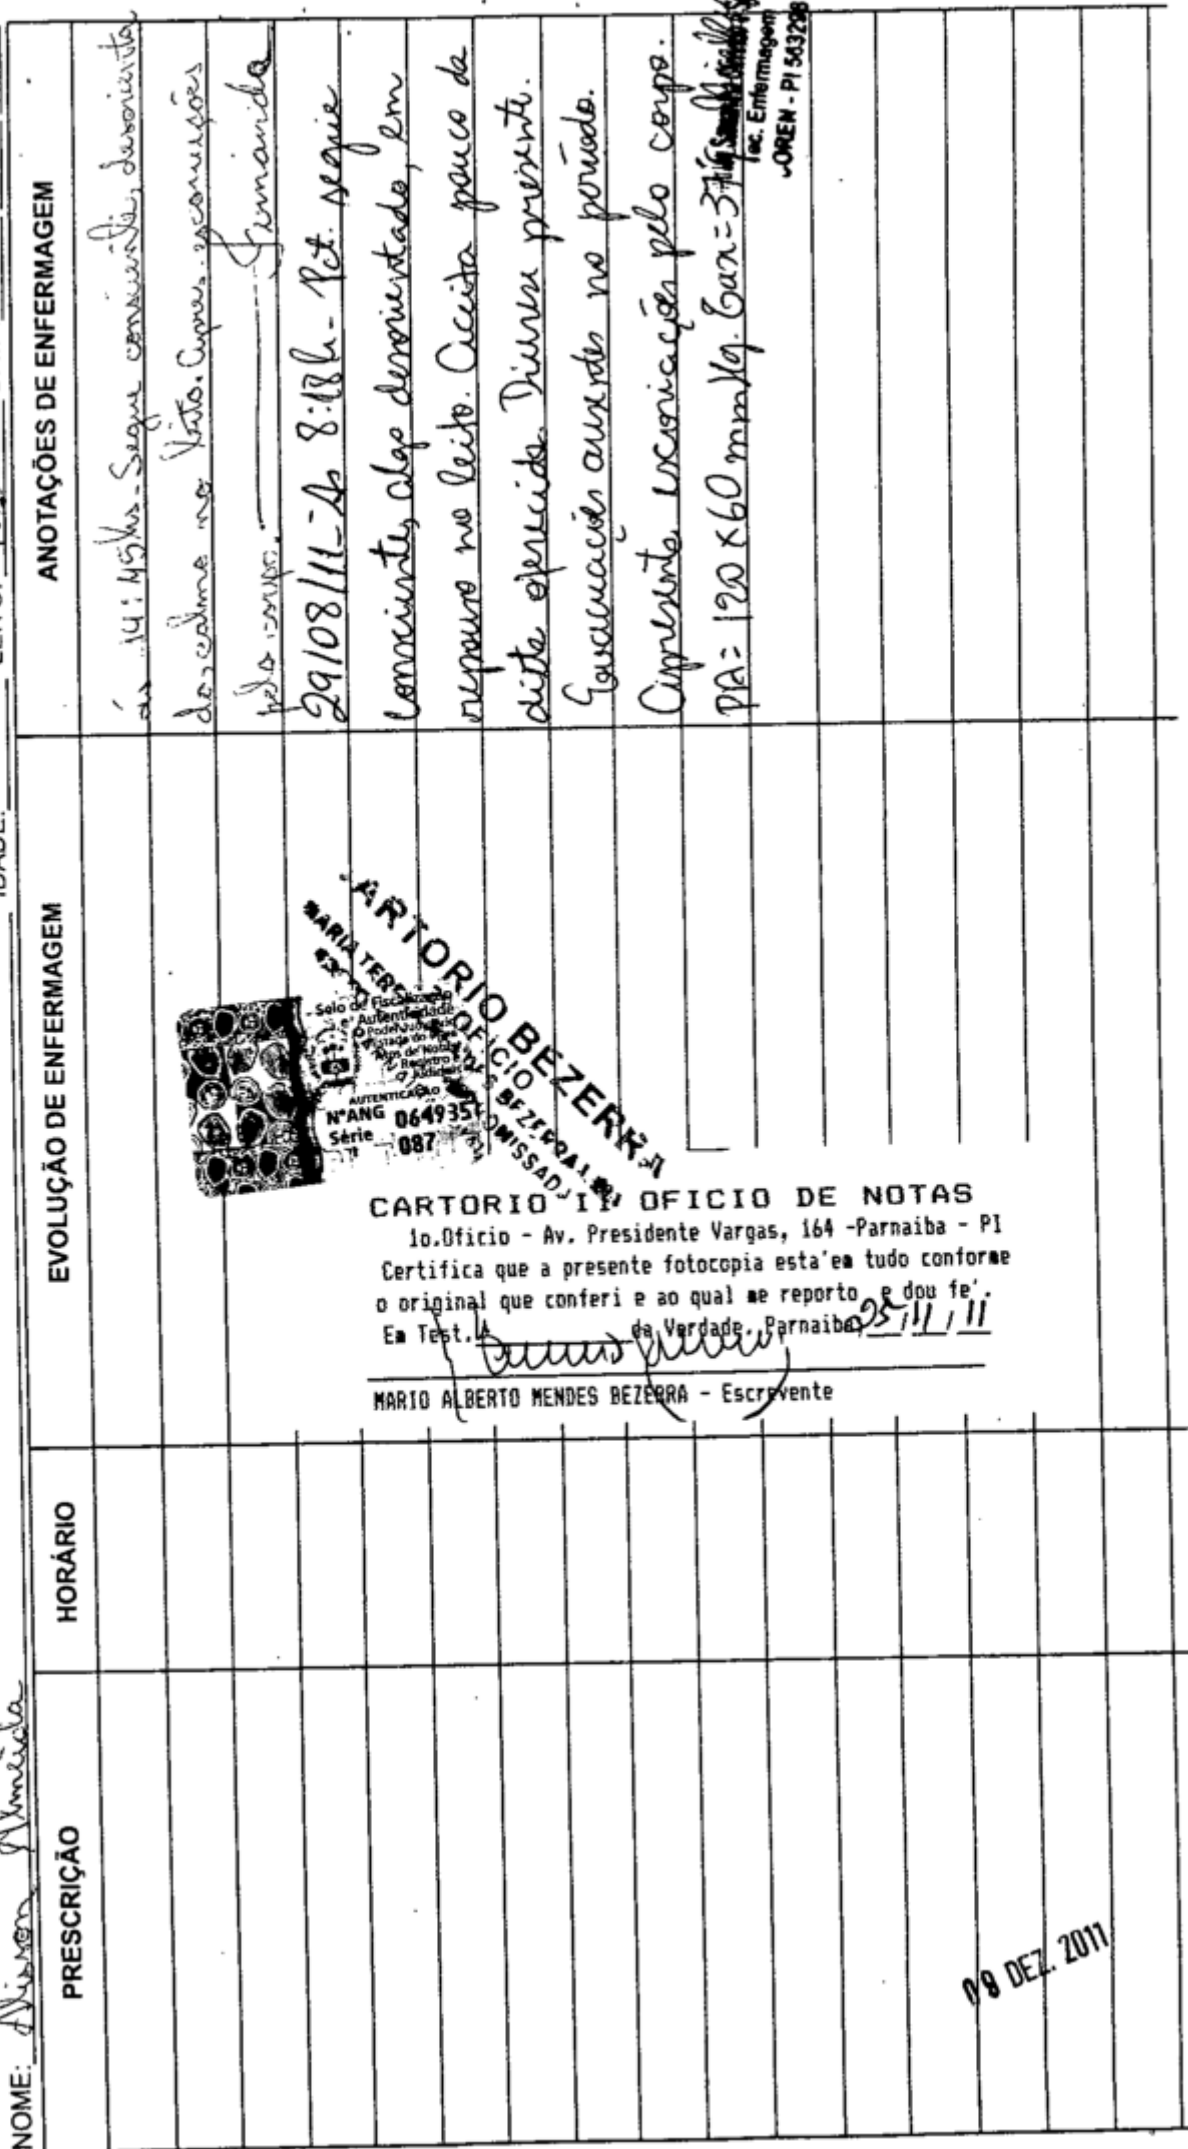 NOME: Alisson Almeida
IDADE:
PRESCRIÇÃO
HORÁRIO
EVOLUÇÃO DE ENFERMAGEM
ANOTAÇÕES DE ENFERMAGEM
às 14:45hs - Segue consciente, desorienta
do, calmo no leito. escoriações
pelo corpo. Fernanda
29/08/11 - Às 8:18h - Pct. segue
consciente, algo desorientado, em
repouso no leito. Aceita pouco da
dieta oferecida. Diurese presente.
Evacuações ausentes no período.
Apresenta escoriações pelo corpo.
PA = 120 x 60 mmHg. Tax = 37
Tec. Enfermagem
COREN - PI 563298
CARTORIO BEZERRA
MARIA
OFICIO
BEZERRA
Selo de Fiscalização
e Autenticidade
Poder Judiciário
Registro
AUTENTICAÇÃO
NºANG 064935
Série 087
CARTORIO II OFICIO DE NOTAS
1o.Oficio - Av. Presidente Vargas, 164 -Parnaiba - PI
Certifica que a presente fotocopia esta'em tudo conforme
o original que conferi e ao qual me reporto e dou fe'.
Em Test. da Verdade. Parnaiba 25/11/11
MARIO ALBERTO MENDES BEZERRA - Escrevente
09 DEZ. 2011